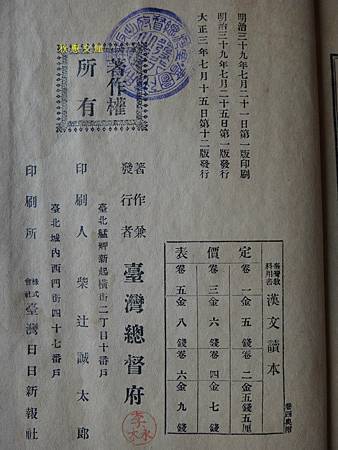 明治三十九年七月二十一日第一版印刷
明治三十九年七月二十五日第一版發行
大正三年七月十五日第十二版發行
著作權
所有
著作兼
發行者
臺灣總督府
臺北艋舺新起橫街二丁目十番戶
印刷人 柴辻誠太郎
臺北城內西門街四十七番戶
印刷所
株式
會社
臺灣日日新報社
漢文讀本
定價表
卷一金五錢
卷二金五錢五厘
卷三金六錢
卷四金七錢
卷五金八錢
卷六金九錢
卷四奧附